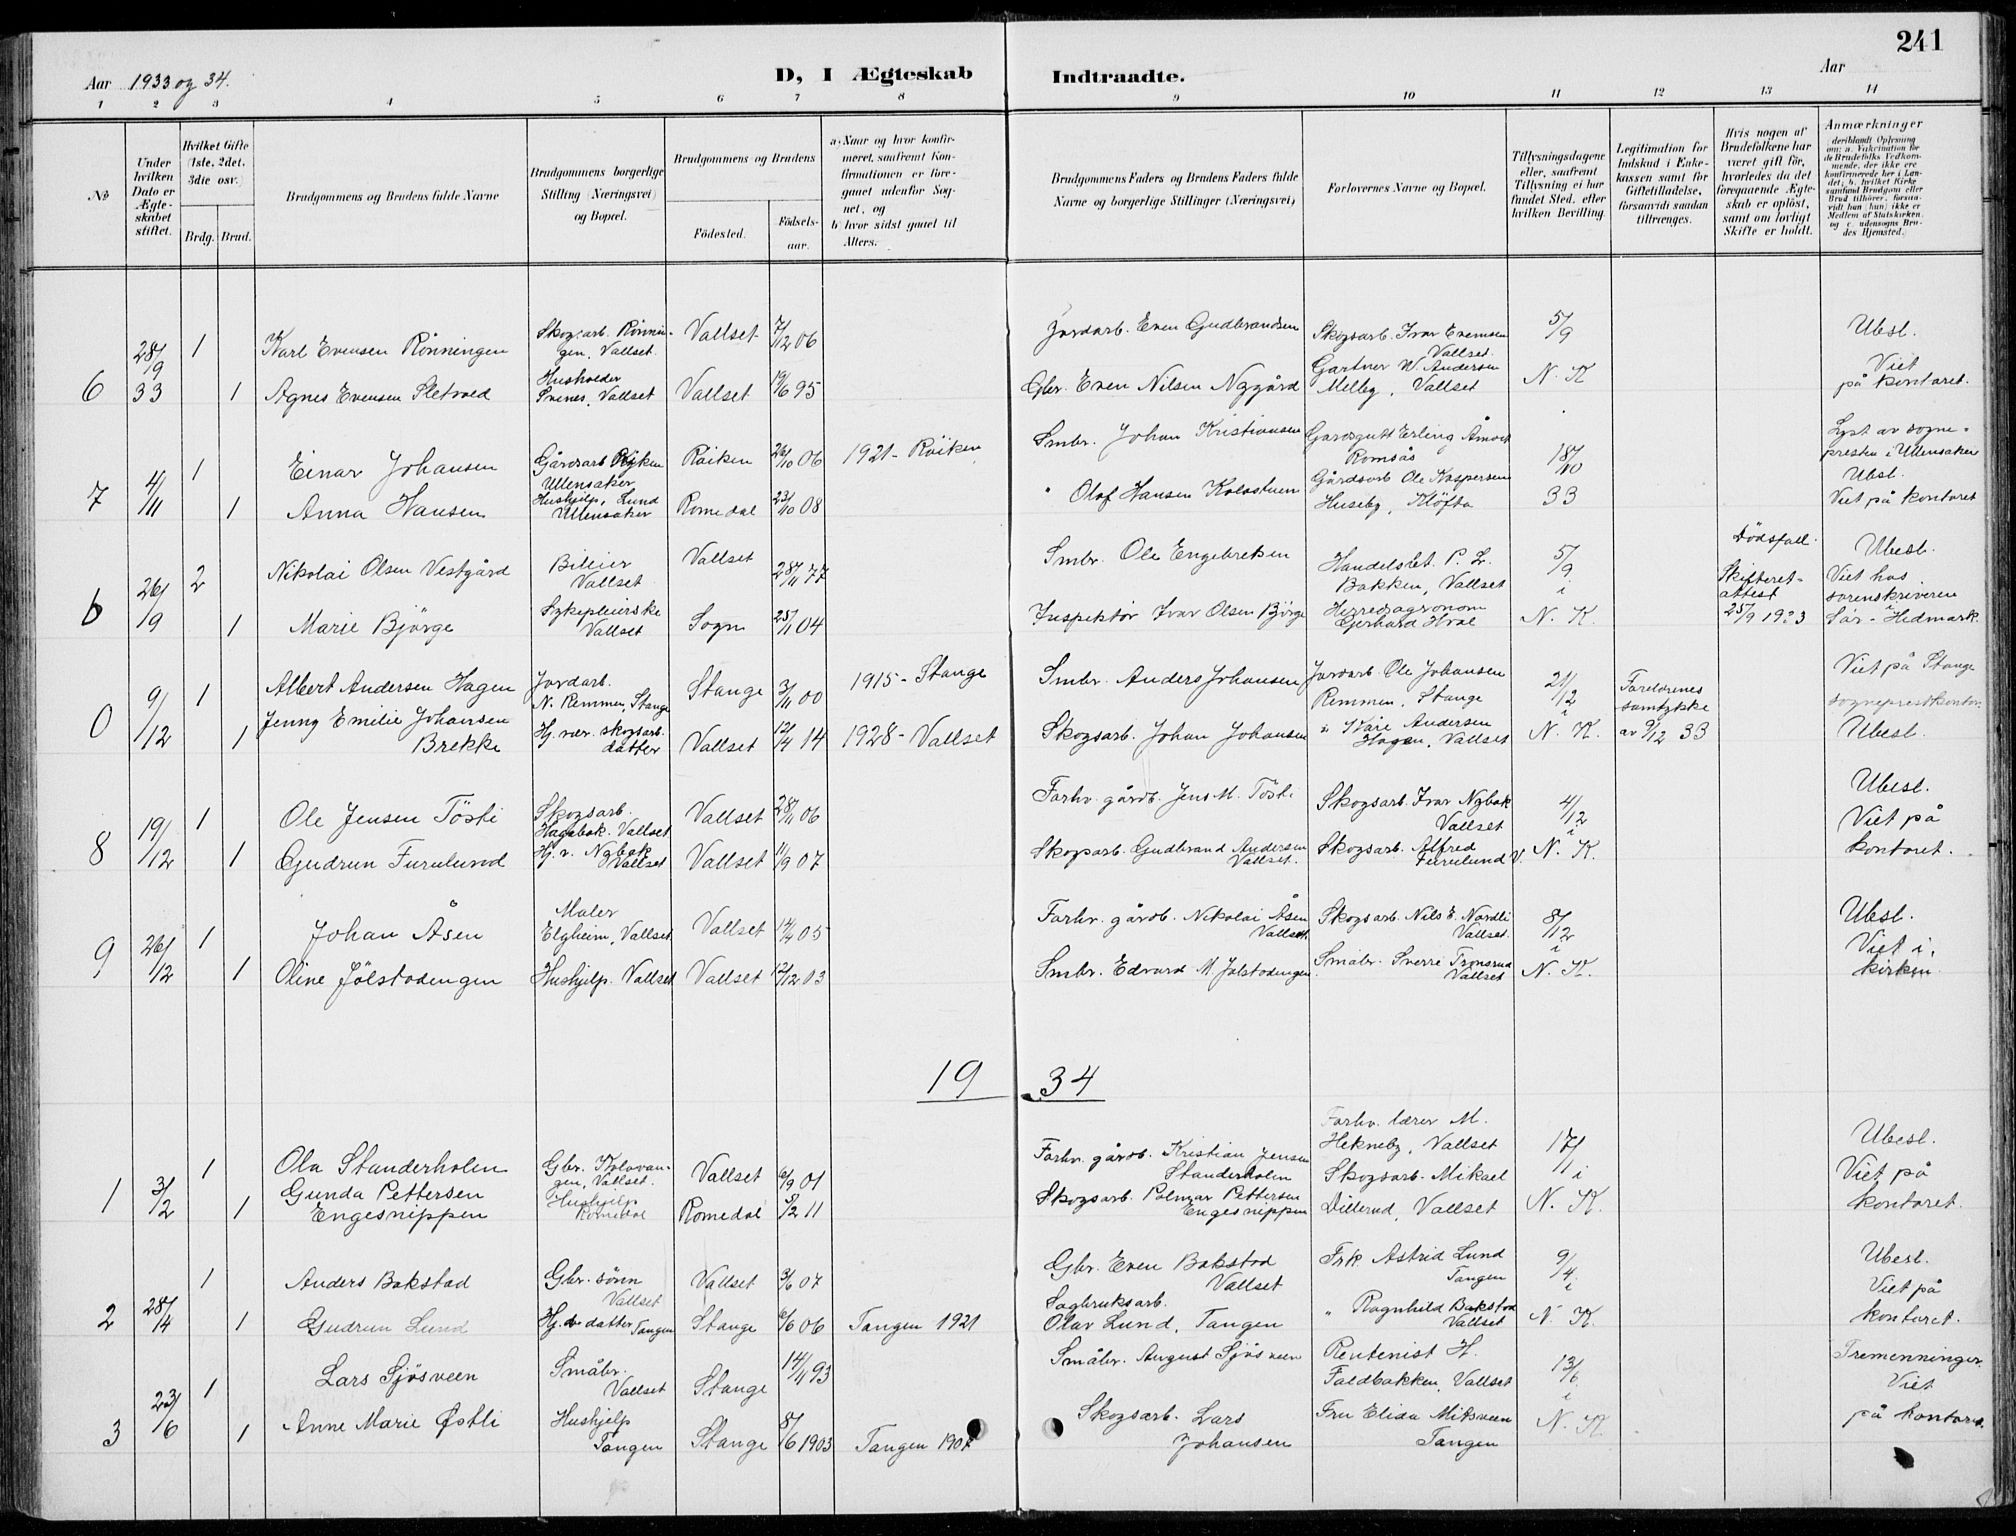 241
Aar 1933 og 34.
D, I Ægteskab Indtraadte.
Aar
1 2 3 4 5 6 7 8 9 10 11 12 13 14
No
Under hvilken Dato er Ægteskabet stiftet.
Hvilket Gifte (1ste, 2det, 3die osv.)
Brdg. Brud.
Brudgommens og Brudens fulde Navne
Brudgommens borgerlige Stilling (Næringsvei) og Bopæl.
Brudgommens og Brudens
Fødested. Fødselsaar.
a) Naar og hvor konfirmeret, saafremt Konfirmationen er foregaaet udenfor Sognet, og
b) hvor sidst gaaet til Alters.
Brudgommens Faders og Brudens Faders fulde Navne og borgerlige Stillinger (Næringsvei)
Forlovernes Navne og Bopæl.
Tillysningsdagene eller, saafremt Tillysning ei har fundet Sted, efter hvilken Bevilling.
Legitimation for Indskud i Enkekassen samt for Giftetilladelse, forsaavidt saadan tiltrænges.
Hvis nogen af Brudefolkene har været gift før, hvorledes da det foregaaende Ægteskab er opløst, samt om lovligt Skifte er holdt.
Anmærkninger
deriblandt Oplysning om: a. Vakcination for de Brudefolks Vedkommende, der ikke ere konfirmerede her i Landet; b. hvilket Kirkesamfund Brudgom eller Brud tilhører, forsaavidt han (hun) ikke er Medlem af Statskirken, og c. udensogns Brudes Hjemsted.
6 28/9 33 1 Karl Evensen Rönningen Skog. arb. Rönningen, Vallset. Vallset 7/12 06 Jordarb. Even Gudbrandsen Skogsarb. Ivar Evensen Vallset. 5/9 Ubesl.
1 Agnes Evensen Sletvold Husholder Svenes, Vallset Vallset 19/6 95 Gbr. Even Nilsen Nygård Gartner W. Andersen Melby, Vallset N. K Viet på kontoret.
7 4/11 1 Einar Johansen Gårdsarb Ullensaker Röiken 26/10 06 1921 - Röiken Smbr. Johan Kristiansen Gardsgutt Erling Åmodt Romsås 18/10 Lyst av sognepresten i Ullensaker
1 Anna Hansen Hushjelp, Lund Ullensaker Romedal 23/10 08 " Olaf Hansen Kolostuen Gårdsarb Ole Kaspersen Huseby, Klöfta 33 Ubesl. Viet på kontoret
6 26/9 2 Nikolai Olsen Vestgård Bileier Vallset Vallset 28/11 77 Smbr. Ole Engebretsen Handelsbet. P. L. Bakken, Vallset 5/9 i Dödsfall. Skifteret-attest 25/9 1933 Ubesl. Viet hos sorenskriveren i Sör-Hedmark.
1 Marie Bjørge Sykepleierske Vallset Sogn 25/11 04 Inspektör Ivar Olsen Bjørge Herredsagronom Gerhard Hval N. K.
0 9/12 1 Albert Andersen Hagen Jordarb. N. Remmen, Stange Stange 3/11 00 1915 - Stange Smbr. Anders Johansen Jordarb Ole Johansen Remmen, Stange 21/12 i Foreldrenes samtykke av 9/12 33 Viet på Stange sogneprestkontor.
1 Jenny Emilie Johansen Brekke Hj. vær. skogsarb. datter Vallset 12/4 14 1928 - Vallset Skogsarb. Johan Johansen " Kåre Andersen Hagen, Vallset N. K. Ubesl.
8 19/12 1 Ole Jensen Tösti Skogsarb. Hagebak. Vallset Vallset 28/11 06 Forhv. gårdb. Jens M. Tösti Skogsarb. Ivar Nybak Vallset 4/12 i Ubesl. Viet på kontoret.
1 Gudrun Furulund Hj. v. Nybak Vallset Vallset 11/9 07 Skogsarb. Gudbrand Andersen Vallset. Skogsarb. Alfred Furulund V. N. K.
9 26/12 1 Johan Åsen Maler Elgheim, Vallset Vallset 14/4 05 Forhv. gårdb. Nikolai Åsen Vallset Skogsarb. Nils E. Nordli Vallset. 8/12 i Ubesl. Viet i kirken.
1 Oline Jölstadengen Hushjelp. Vallset Vallset 12/12 03 Smbr. Edvard M. Jölstadengen Småbr. Sverre Tronsrud Vallset N. K.
19 34
1 3/2 1 Ola Standerholen Gbr. Kolovangen, Vallset. Vallset 6/9 01 Forhv. gårdb. Kristian Jensen Standerholen Forhv. lærer M. Hekneby, Vallset 17/1 i Ubesl. Viet på kontoret.
1 Gunda Pettersen Engesnippen Hushjelp Romedal Romedal 5/2 11 Skogsarb. Palmar Pettersen Engesnippen Skogsarb. Mikael Dillerud, Vallset N. K.
2 28/4 1 Anders Bakstad Gbr. sönn Vallset Vallset 3/6 07 Gbr. Even Bakstad Vallset Frk. Astrid Lund Tangen 9/4 i Ubesl. Viet på kontoret.
1 Gudrun Lund Hj. v. datter Tangen Stange 6/6 06 Tangen 1921 Sagbruksarb. Olav Lund, Tangen " Ragnhild Bakstad Vallset N. K.
3 23/6 1 Lars Sjösveen Småbr. Vallset Stange 14/11 93 Småbr. August Sjösveen Rentenist H. Faldbakken, Vallset 13/6 i Tremenninger. Viet på kontoret
1 Anne Marie Østli Hushjelp Tangen Stange 8/6 1903 Tangen 1907 Skogsarb. Lars Johansen Fru Elida Mitsveen Tangen N. K